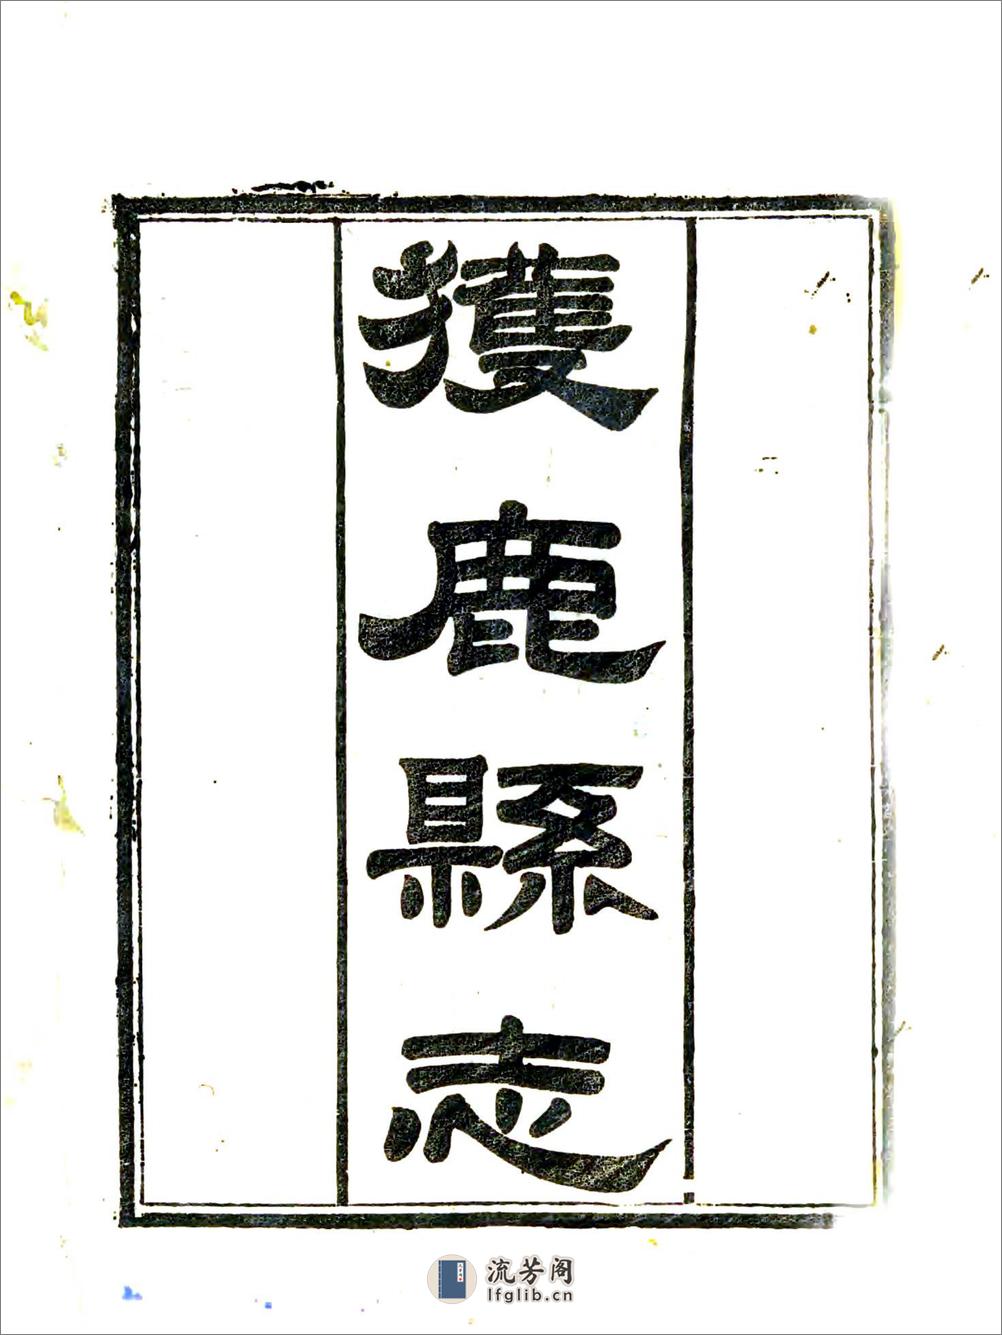 獲鹿縣志
流芳阁
lfglib.cn